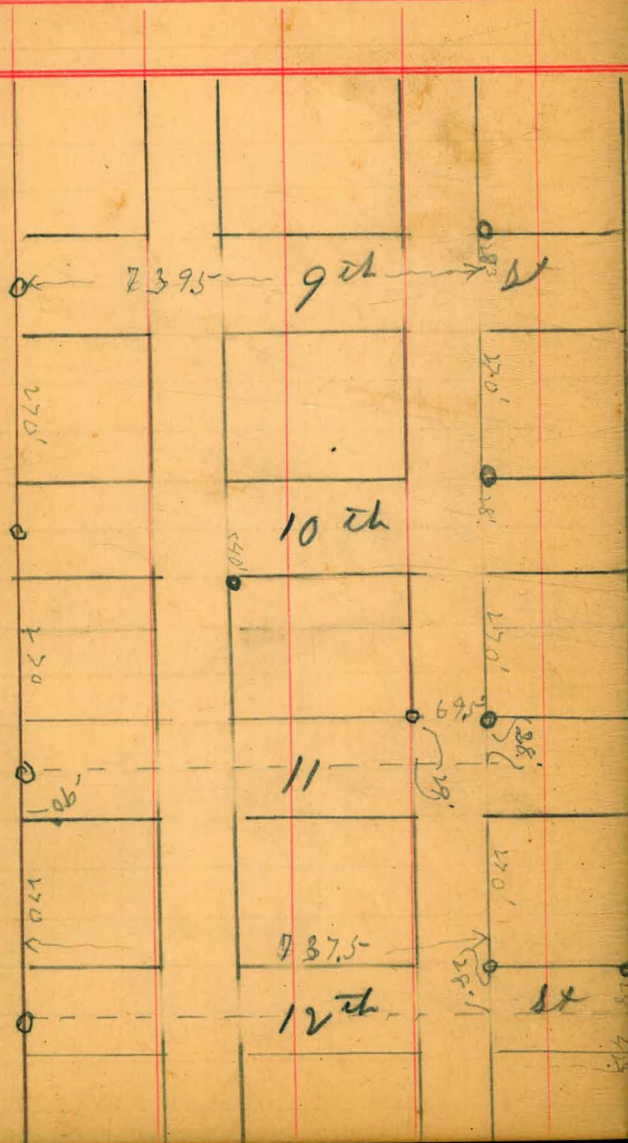 739.5 9th St
28.3
270'
270'
28'
10th
540'
270
270'
69.5
28'
28'
11
90'
270
270'
737.5
28'
12th St
28